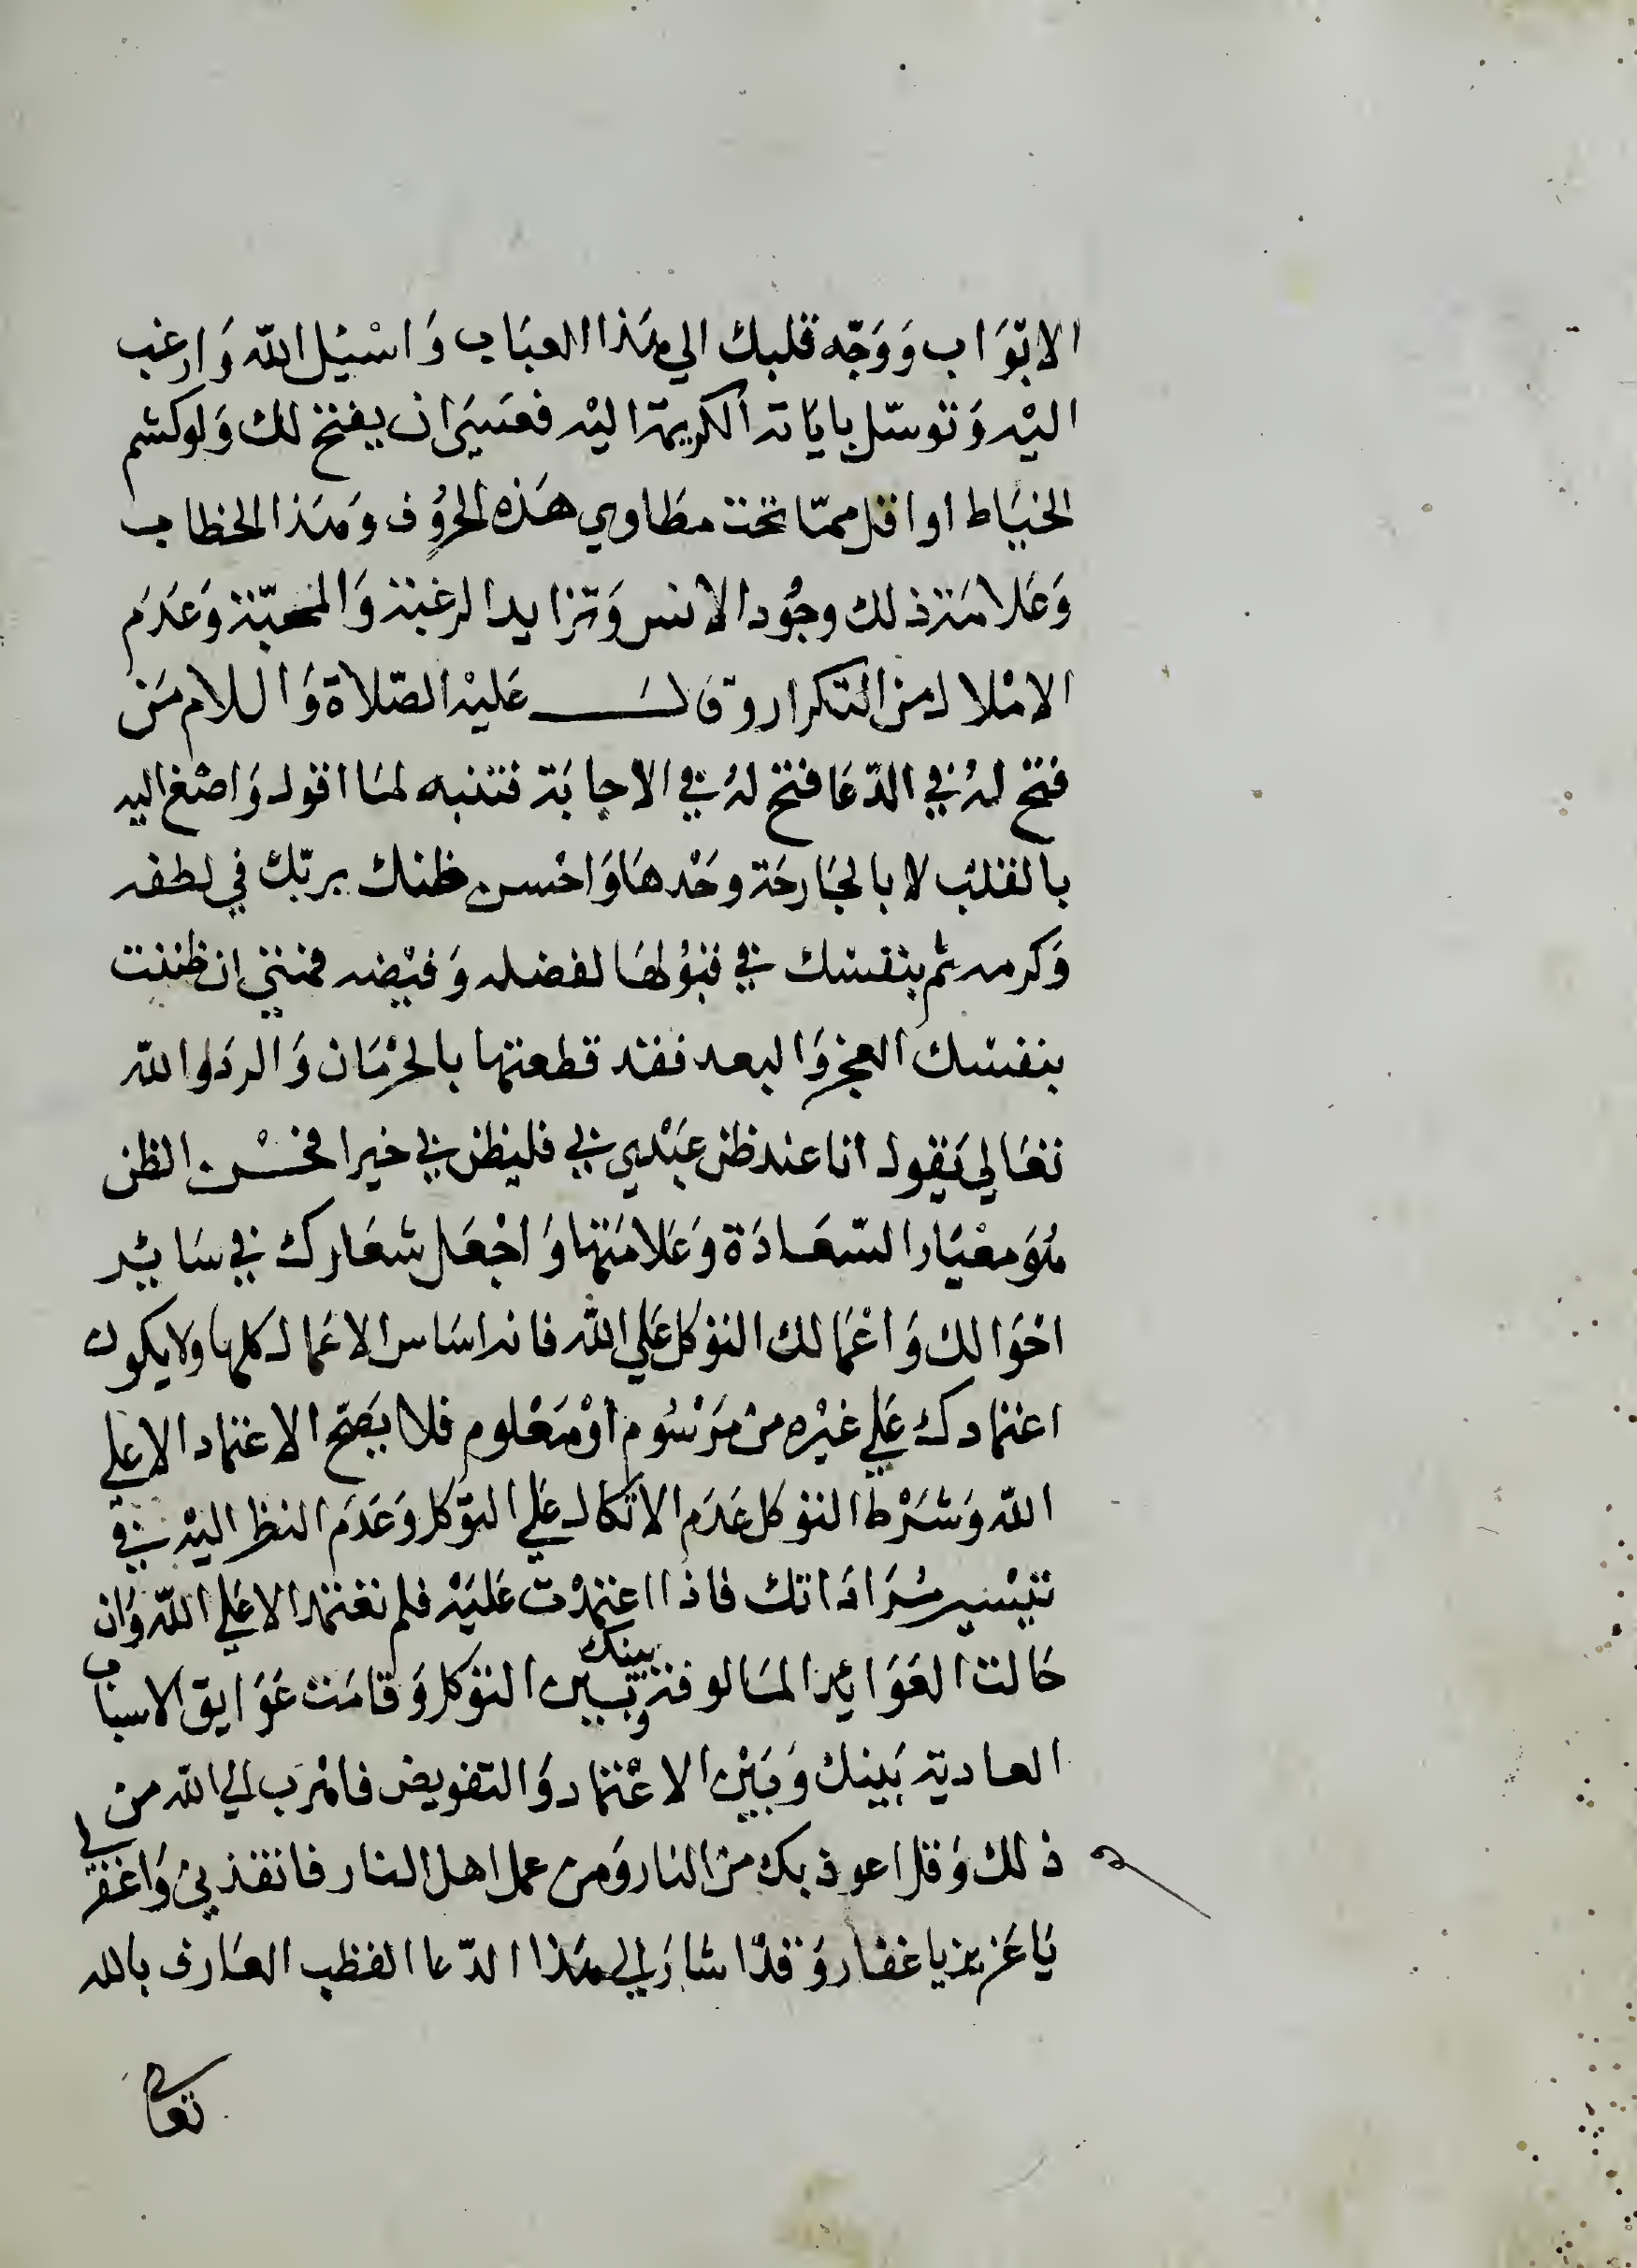 الابْوَاب وَوَجّه قلبك الي هَذا العبَاب وَاسْئِل اللّه وَارغب
اليْه وَتوسّل باياته الكريمة اليْه فعَسَى ان يفتح لك وَلو كشم
الخيَاط او اقل ممّا تحت مطاوي هَذه الحرُوف وَهَذا الخطاب
وَعَلامَة ذلك وجُود الانس وَتزايد الرغبة وَالمحبّة وَعَدَم
الامْلال من التكرار وَقالَ عَليْه الصّلاة وَاللام مَن
فتح لهُ في الدّعَا فتح لهُ في الاجابَة فتنبه لمَا اقول وَاصْغ اليه
بالقلب لا بالجَارحَة وحْدهَا وَاحْسن ظنك بربّك في لطفه
وَكرمه ثم بنفسك في قبُولهَا لفضله وَفيْضه فمتي ان ظننت
بنفسك العجز وَالبعد فقد قطعتها بالحرْمَان وَالرد والله
تعَالي يَقول انا عند ظن عَبْدي بي فليظن بي خيرا فحُسْن الظن
هُوَ معْيَار السّعَادَة وَعَلامَتها وَاجْعَل شعَارك في سَائر
احْوَالك وَاعْمَالك التوكل عَلي اللّه فانه اسَاس الاعمَال كلها ولا يكون
اعتمادك عَلي غيْره من مَرْسُوم اوْ مَعْلوم فلا يَصحّ الاعتماد الا علي
اللّه وَشَرْط التوكل عَدَم الاتكال عَلي التوّكل وَعَدَم النظر اليْه في
تيْسير مُرَادَاتك فاذا اعتمدْت عَليْه فلم تعْتمد الا عَلي اللّه وَان
حَالت العَوَائد المَالوفة بينك وبين التوكل وَقامَت عَوَايق الاسباب
العادية بَينك وَبَيْن الاعْتماد وَالتفويض فاهْرَب الي الله من
ذلك وَقل اعوذ بك من النار وَمن عمل اهل النار فانقذني وَاغفر لي
يَا عَزيز يا غفار وَقدْ اشارَ الي هَذا الدّعا القطب العَارف بالله
تعالى